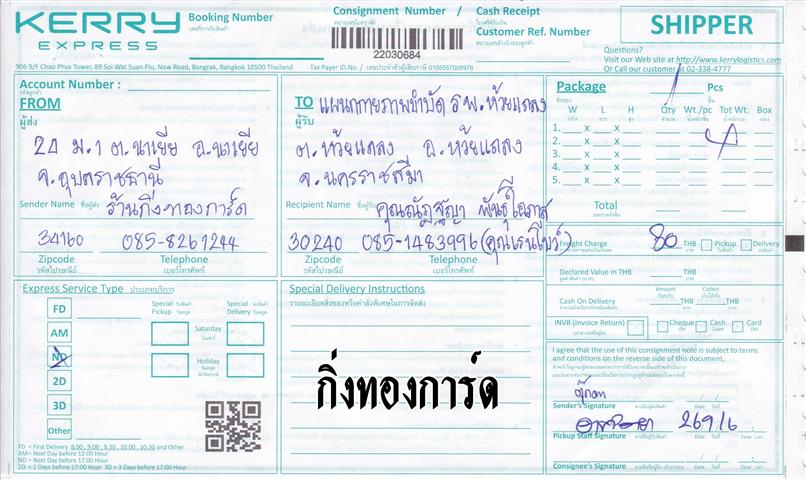 KERRY
EXPRESS
Booking Number
เลขที่การรับสินค้า
Consignment Number /
หมายเลขใบตราส่ง
22030684
Cash Receipt
ใบเสร็จรับเงิน
Customer Ref. Number
หมายเลขอ้างอิงของลูกค้า
SHIPPER
Questions?
Visit our Web site at http://www.kerrylogistics.com
Or Call our customer at 02-338-4777
906 9/F Chao Phya Tower, 89 Soi Wat Suan Plu, New Road, Bangrak, Bangkok 10500 Thailand
Tax Payer ID.No. / เลขประจำตัวผู้เสียภาษี 0105557008976
Account Number :
รหัสลูกค้า
FROM
ผู้ส่ง
24 ม.1 ต.นาเยีย อ.นาเยีย
จ.อุบลราชธานี
Sender Name ชื่อผู้ส่ง ร้านกิ่งทองการ์ด
34160 085-8261244
Zipcode Telephone
รหัสไปรษณีย์ เบอร์โทรศัพท์
TO แผนกกายภาพบำบัด รพ.ห้วยแถลง
ผู้รับ
ต.ห้วยแถลง อ.ห้วยแถลง
จ.นครราชสีมา
Recipient Name ชื่อผู้รับ คุณณัฏฐญา พันธุ์โอภาส
30240 085-1483996 (คุณเรนโบว์)
Zipcode Telephone
รหัสไปรษณีย์ เบอร์โทรศัพท์
Package 1 Pcs
W L H Qty Wt./pc Tot Wt. Box
1. x x 4
2. x x
3. x x
4. x x
5. x x
Total
Freight Charge 80 THB Pickup Delivery
Declared Value in THB THB
Amount Collect
Cash On Delivery THB THB
INVR (Invoice Return) Cheque Cash Card
I agree that the use of this consignment note is subject to terms
and conditions on the reverse side of this document.
Sender's Signature Date วันที่
26916
Pickup Staff Signature Date วันที่ Time เวลา
Consignee's Signature Date วันที่ Time เวลา
Express Service Type ประเภทบริการ
FD
AM
ND
2D
3D
Other
Special Pickup Special Delivery
Saturday
วันเสาร์
Holiday
วันหยุด
FD = First Delivery 8.00, 9.00, 9.30, 10.00, 10.30 and Other
AM= Next Day before 12:00 Hour
ND = Next Day before 17:00 Hour
2D = 2 Days before 17:00 Hour 3D = 3 Days before 17:00 Hour
Special Delivery Instructions
รายละเอียดสิ่งของหรือคำสั่งพิเศษในการจัดส่ง
กิ่งทองการ์ด